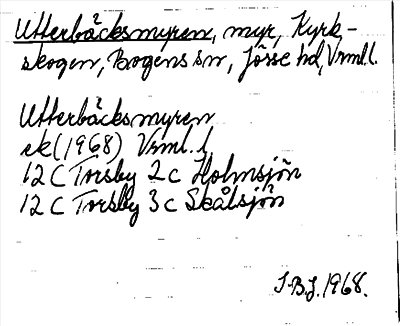 Utterbäcksmyren, myr, Kyrk-
skogen, Bogens sn, Jösse hd, Vrml.l.
Utterbäcksmyren
ek (1968) Vrml. l
12 C Torsby 2 c Holmsjön
12 C Torsby 3 c Skålsjön
J.B.J. 1968.